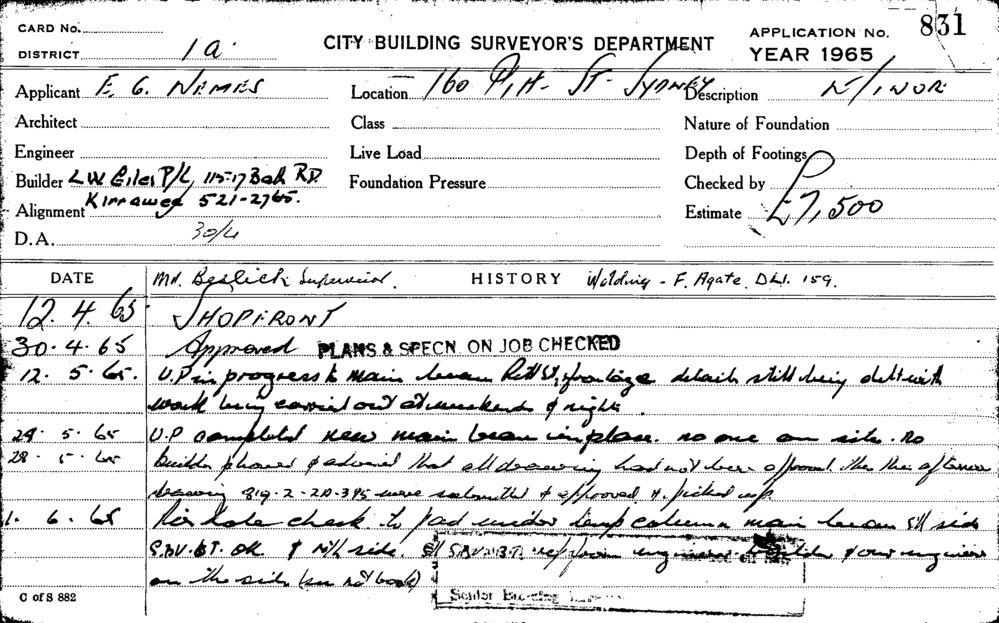 CARD No.
DISTRICT 1a.
CITY BUILDING SURVEYOR'S DEPARTMENT
APPLICATION No. 831
YEAR 1965
Applicant E. G. NEMES
Location 160 Pitt St Sydney
Description
Architect
Class
Nature of Foundation
Engineer
Live Load
Depth of Footings
Builder L W Giles P/L, 115-17 Bath RD.
Kirrawee 521-2765.
Foundation Pressure
Checked by
Alignment
Estimate £7,500
D.A. 30/4
DATE
Mr. Beslich Supervisor.
HISTORY
Welding - F. Agate D.L.I. 159.
12.4.65 SHOPFRONT
30.4.65 Approved PLANS & SPECN. ON JOB CHECKED
12.5.65. U.P in progress to main beam Pitt St, frontage details still being dealt with
work being carried out at weekends & nights.
24.5.65 U.P completed new main beam in place. no one on site. No
28.5.65 builder phoned & advised that all drawing had not been approved
drawing 819.2-20-395 were submitted & approved & picked up
1.6.65 hole check to pad under temp column main beam Sth side
OK & Nth side. engineer
on the side (see note book)
Senior Building
C of S 882